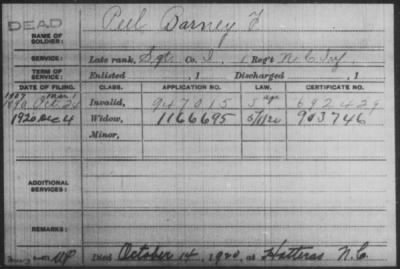 DEAD
NAME OF SOLDIER: Peel Barney F
SERVICE: Late rank, Sgt Co. I, 1 Reg't N.C. Inf
TERM OF SERVICE: Enlisted , 1 Discharged , 1
DATE OF FILING. CLASS. APPLICATION NO. LAW. CERTIFICATE NO.
1890 Oct 24 Invalid, 947015 692429
1920 Dec 4 Widow, 1166695 903746
Minor,
ADDITIONAL SERVICES:
REMARKS:
Died October 14, 1920, at Hatteras N.C.